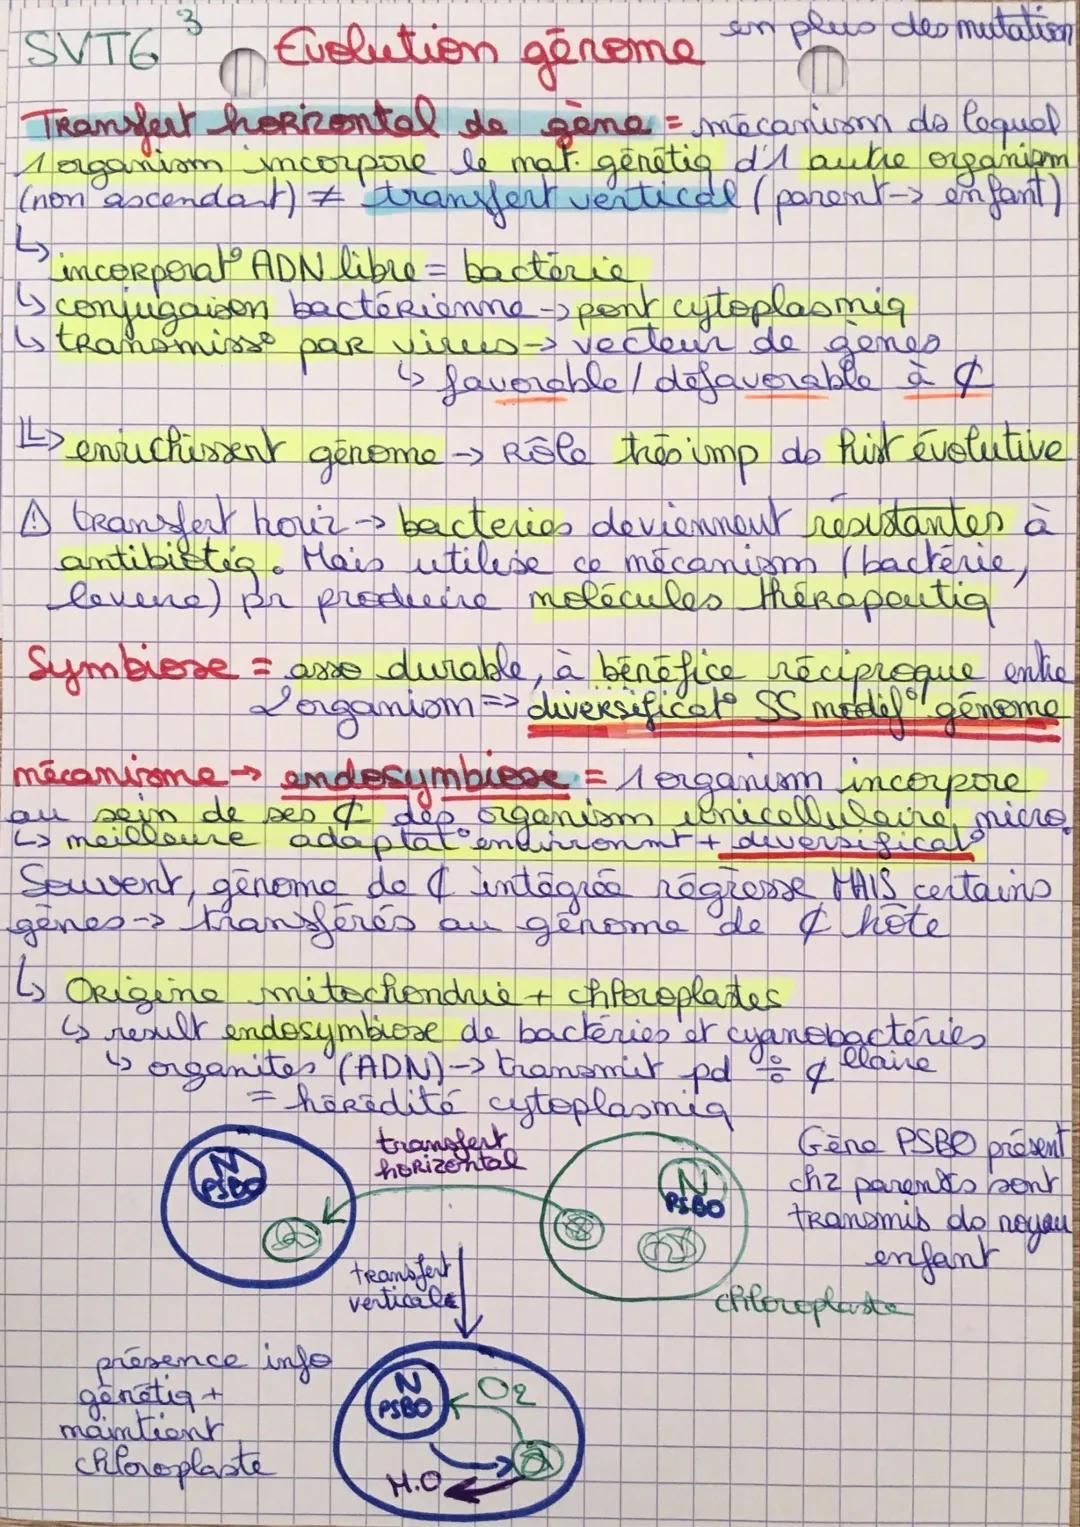 SVT6 3
Evolution génome
en plus des mutation
Transfert horizontal de gène = mécanism ds lequel
1 organism incorpore le mat. génétiq d'1 autre organism
(non ascendant) ≠ transfert vertical (parent → enfant)
↳ incorporat° ADN libre = bactérie
↳ conjugaison bactérienne → pont cytoplasmiq
↳ transmiss° par virus → vecteur de gènes
↳ favorable / défavorable à ¢
↳ enrichissent génome → Rôle très imp ds hist évolutive
⚠ transfert horiz → bacteries deviennent résistantes à
antibiotiq. Mais utilise ce mécanism (bactérie,
levure) pr produire molécules thérapeutiq
Symbiose = asso durable, à bénéfice réciproque entre
2 organism => diversificat° SS modif° génome
mécanisme → endosymbiose = 1 organism incorpore
au sein de ses ¢ des organism unicellulaire micro.
↳ meilleure adaptat° environmt + diversificat°
Souvent, génome de ¢ intégrée régresse MAIS certains
gènes → transférés au génome de ¢ hôte
↳ Origine mitochondrie + chloroplastes
↳ result endosymbiose de bactéries et cyanobactéries
↳ organites (ADN) → transmit pd ÷ ¢llaire
= hérédité cytoplasmiq
N
PSBO
transfert
horizontal
N
PSBO
Gène PSBO présent
chz parents sont
transmis ds noyau
enfant
transfert
verticale
chloroplaste
présence info
génétiq +
maintient
chloroplaste
N
PSBO
O2
H.O